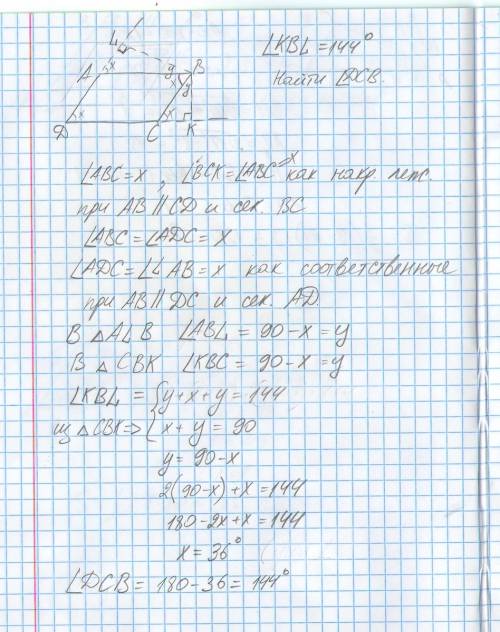 L
A
x
y
B
x
y
∠KBL = 144°
Найти ∠DCB.
x
x
D
C
K
∠ABC = x, ∠BCK = ∠ABC = x как накр. леж.
при AB || CD и сек. BC
∠ABC = ∠ADC = x
∠ADC = ∠LAB = x как соответственные
при AB || DC и сек. AD.
В △ALB ∠ABL = 90 - x = y
В △CBK ∠KBC = 90 - x = y
∠KBL = { y + x + y = 144
из △CBK => { x + y = 90
y = 90 - x
2(90 - x) + x = 144
180 - 2x + x = 144
x = 36°
∠DCB = 180 - 36 = 144°